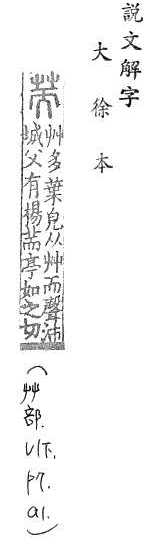 說文解字
大徐本
艸多葉皃从艸而聲沛
城父有楊荋亭如之切
(艸部.
1下,
p7.
a1.)